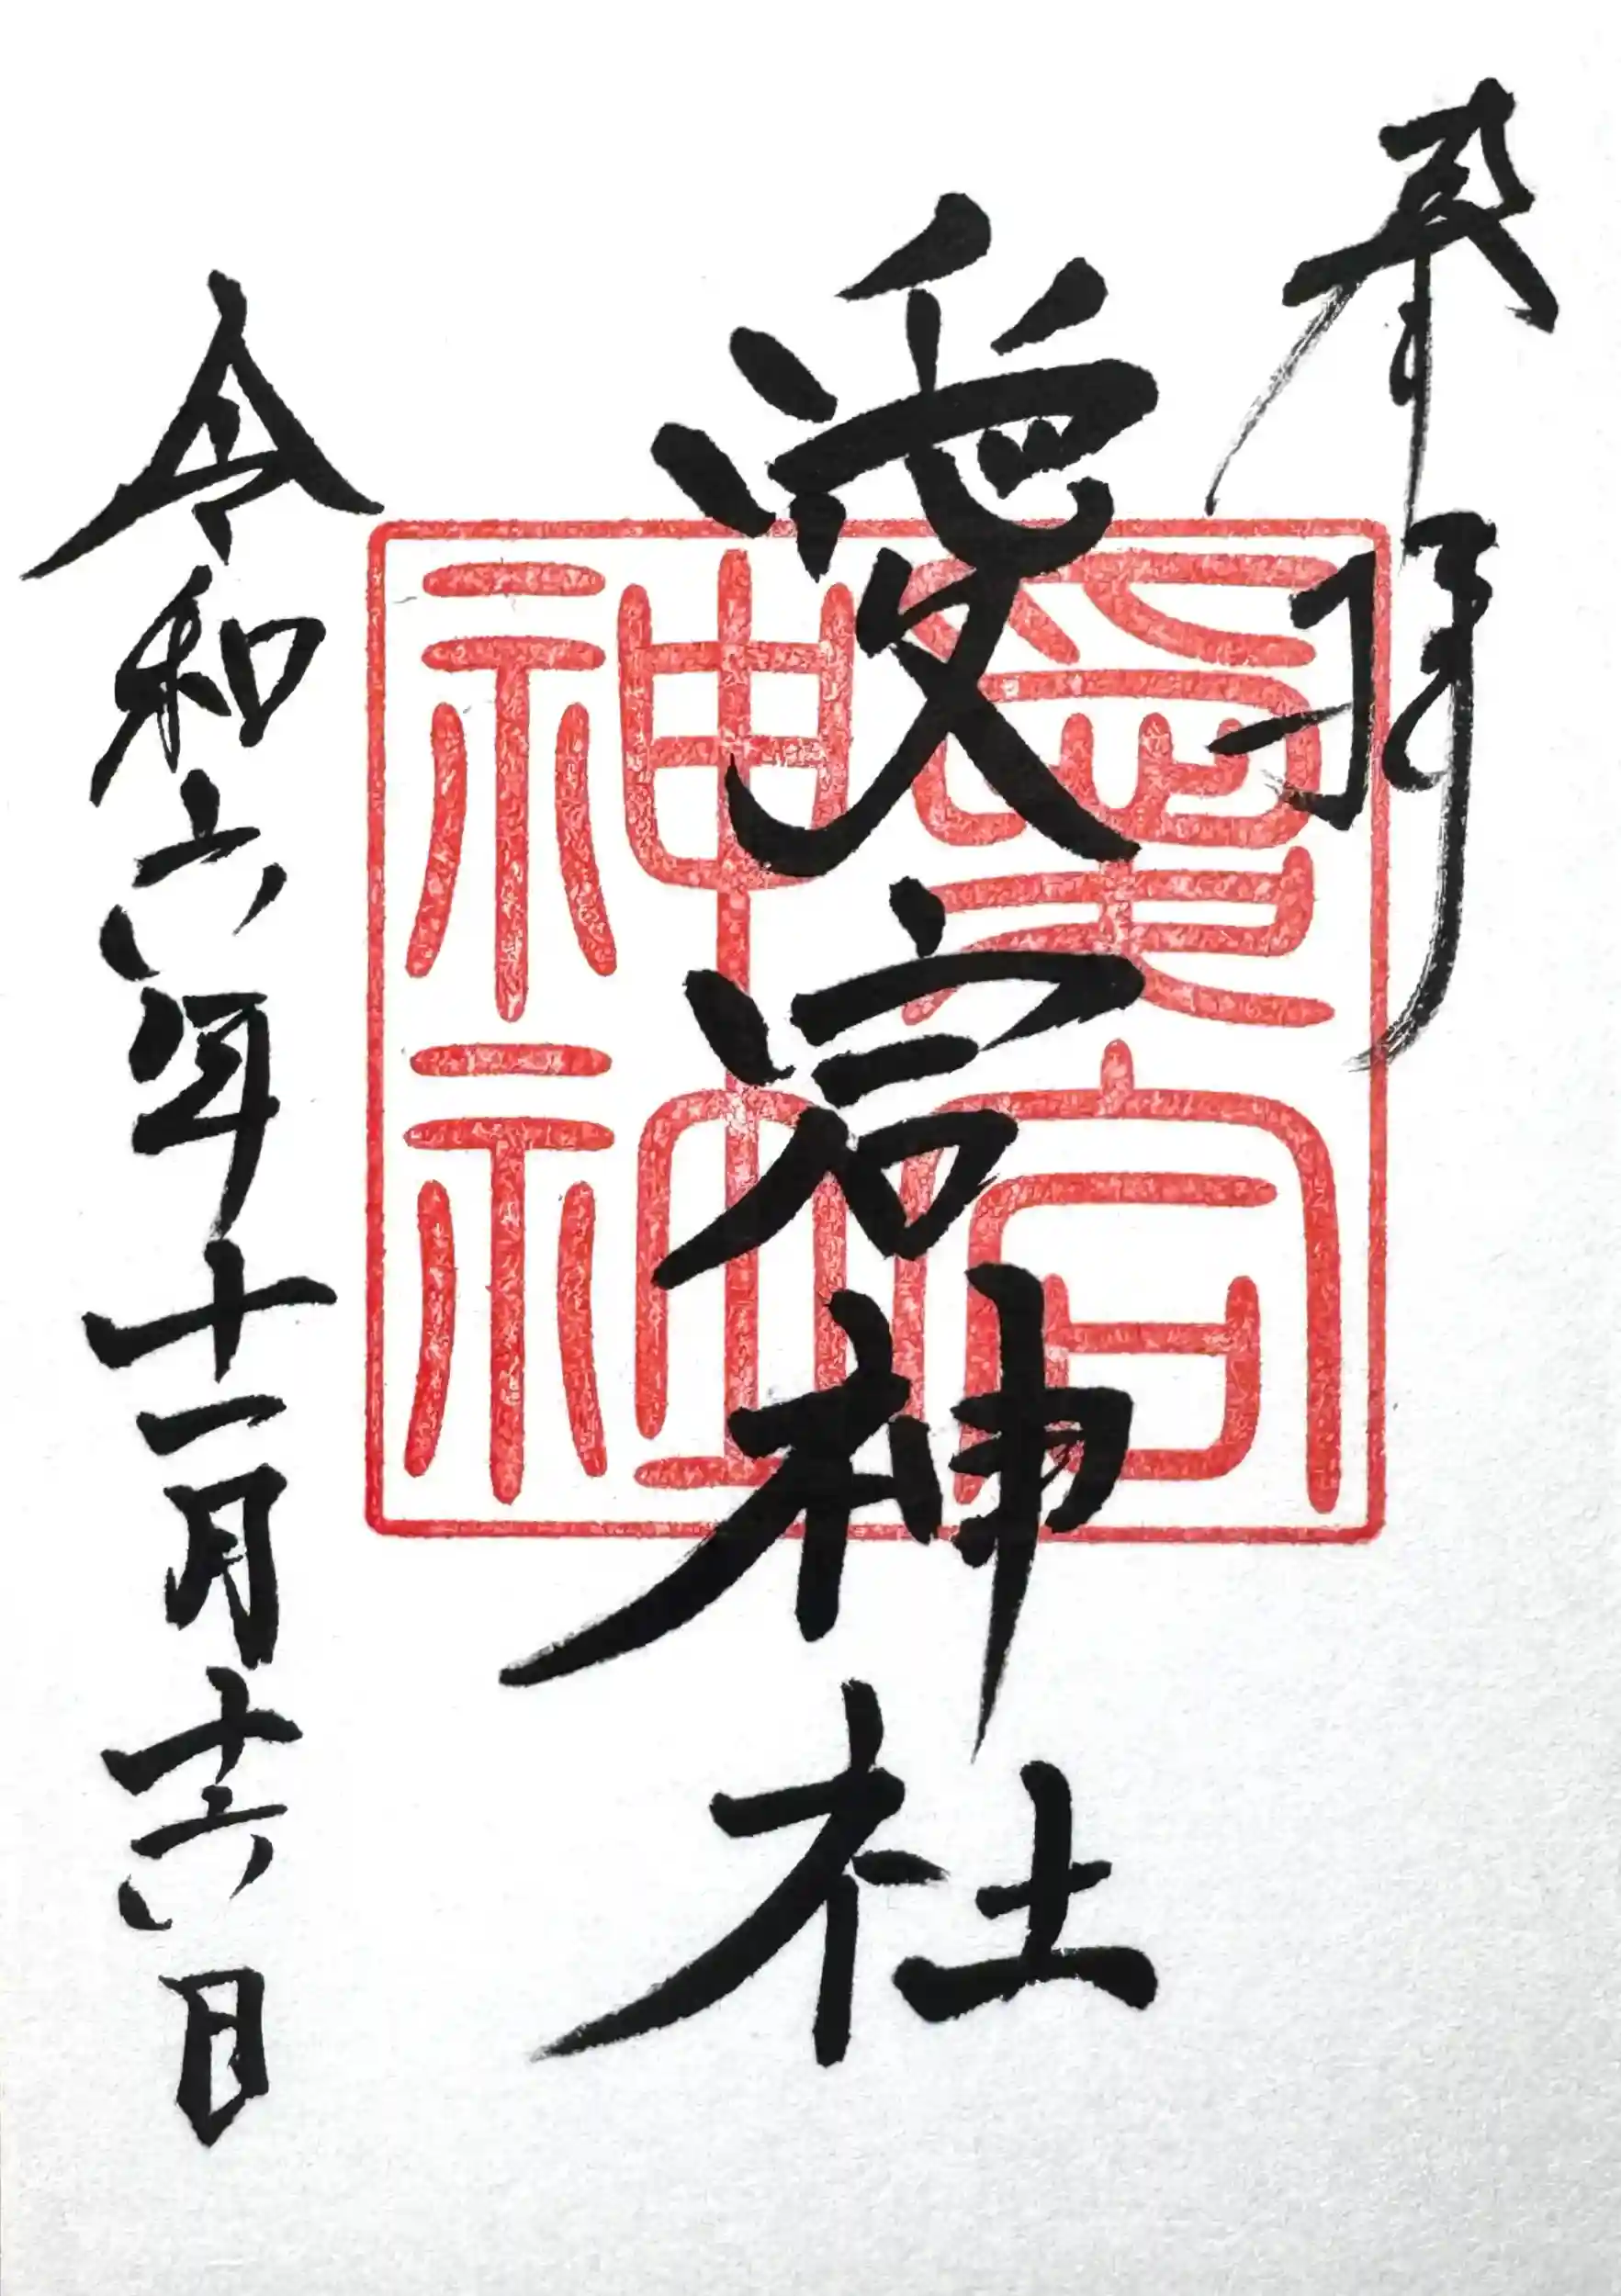 奉拝
愛宕神社
愛宕
神社
令和六年十一月十六日